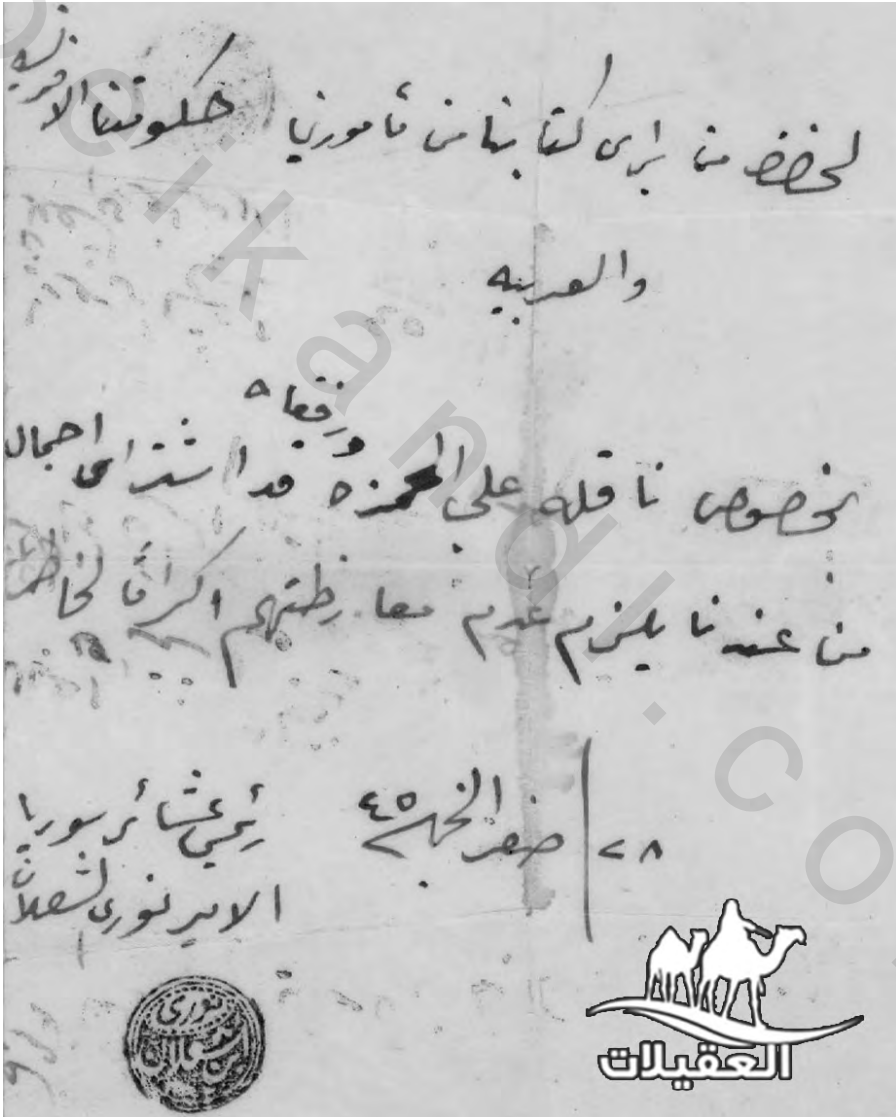 لحضض من يرى كتابنا من مأمورين حكومتنا الافرنسيه
والعربيه
ورفقاه
بخصوص ناقله علي الحمزه قد اشترا من اجمال
من عندنا يلزم عدم معارظتهم اكراماً لخاطر
٢٨/ صفر الخير ٤٥
رئيس عشائر سوريا
الامير نوري الشعلان
نوري الشعلان
العقيلات
oikandl.com